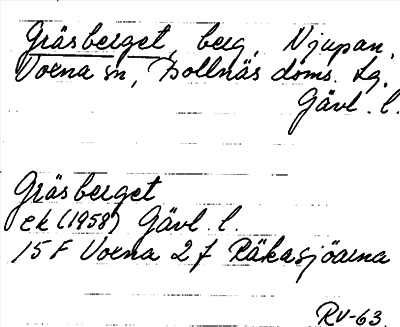 Gräsberget, berg, Njupan,
Voxna sn, Bollnäs doms. tg.
Gävl. l.
Gräsberget
ek (1958) Gävl. l.
15 F Voxna 2 f Räkasjöarna
RV-63